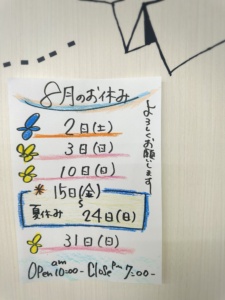 8月のお休み
よろしくお願いします
2日(土)
3日(日)
10日(日)
*15日(金)
夏休み 〜 24日(日)
31日(日)
Open am 10:00- Close Pm 7:00-